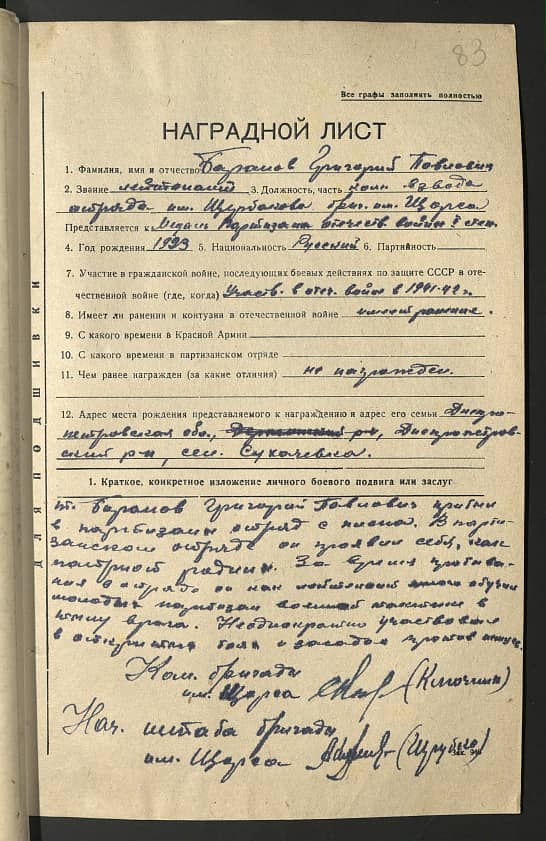 83
Все графы заполнять полностью
НАГРАДНОЙ ЛИСТ
1. Фамилия, имя и отчество Баранов Григорий Павлович
2. Звание лейтенант 3. Должность, часть ком. взвода
отряда им. Щербакова бриг. им. Щорса
Представляется к Медаль Партизана отечеств. войны I степ.
4. Год рождения 1923 5. Национальность Русский 6. Партийность
7. Участие в гражданской войне, последующих боевых действиях по защите СССР в оте-
чественной войне (где, когда) Участв. в отеч. войне в 1941-42 г.
8. Имеет ли ранения и контузии в отечественной войне имеет ранение.
9. С какого времени в Красной Армии
10. С какого времени в партизанском отряде
11. Чем ранее награжден (за какие отличия) не награжден.
12. Адрес места рождения представляемого к награждению и адрес его семьи Днепро-
петровская обл., Днепропетров-
ский р-н, сел. Сухачевка.
1. Краткое, конкретное изложение личного боевого подвига или заслуг
т. Баранов Григорий Павлович прибыл
в партизан. отряд с плена. В парти-
занском отряде он проявил себя, как
патриот родины. За время пребыва-
ния в отряде он как лейтенант много обучал
молодых партизан военной тактике в
тылу врага. Неоднократно участвовал
в открытых боях и засадах против
Ком. бригады
им. Щорса
Нач. штаба бригады
им. Щорса
ДЛЯ ПОДШИВКИ